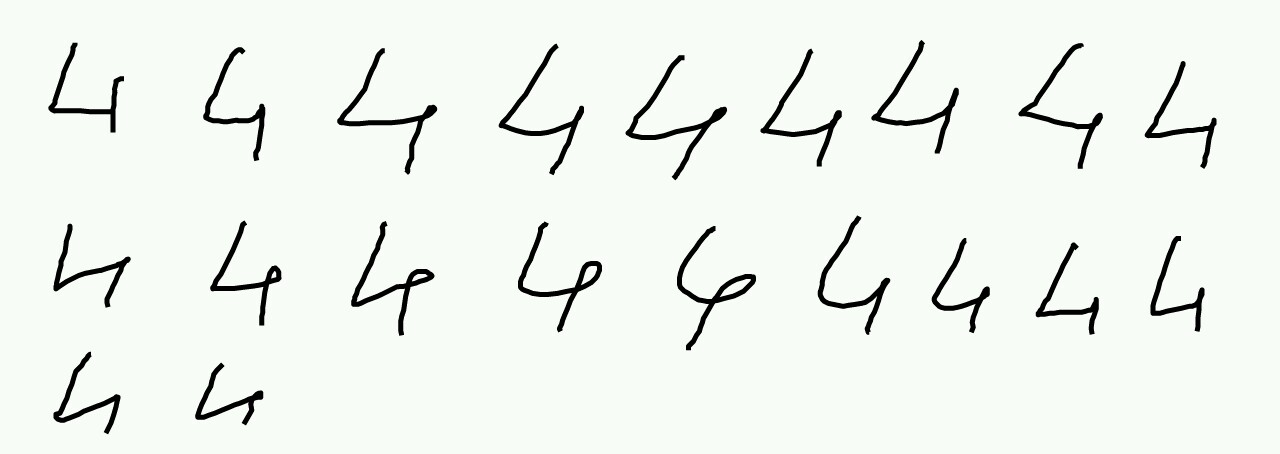 4 4 4 4 4 4 4 4 4
4 4 4 4 4 4 4 4 4
4 4